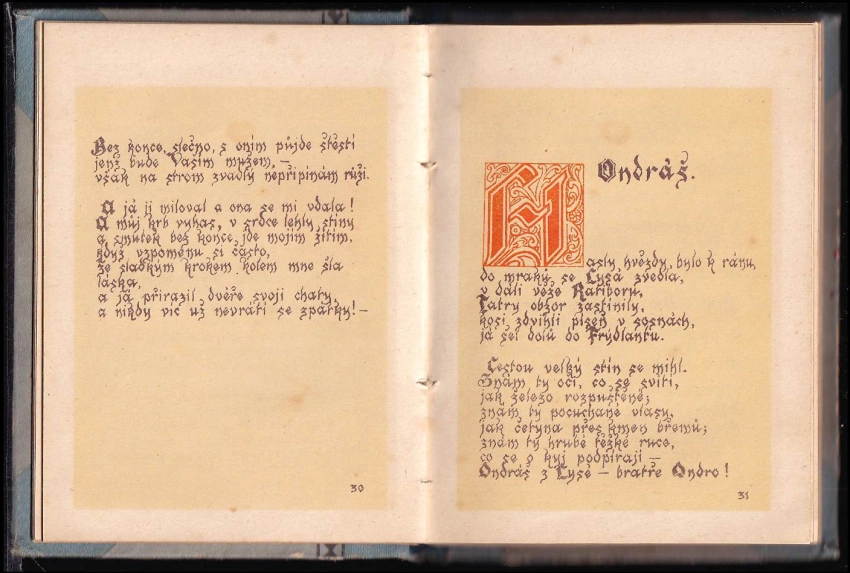 Bez konce, slečno, s oním půjde štěstí
jenž bude Vaším mužem, –
však na strom zvadlý nepřipínám růži.
A já ji miloval a ona se mi vdala!
A můj krb vyhas, v srdce lehly stíny
a smutek bez konce jde mojím žitím,
když vzpomenu si často,
že sladkým krokem kolem mne šla
láska,
a já přirazil dvéře svojí chaty,
a nikdy víc už nevrátí se zpátky! –
30
Ondráš.
Hasly hvězdy, bylo k ránu,
do mraků se Lysá zvedla,
v dáli věže Ratiboru,
Tatry obzor zastínily,
kosi zdvihli píseň v sosnách,
já šel dolů do Frýdlantu.
Cestou velký stín se mihl.
Znám ty oči, co se svítí,
jak železo rozpuštěné;
znám ty pocuchané vlasy,
jak četyna přes kmen břemů;
znám ty hrubé těžké ruce,
co se o kyj podpírají –
Ondráš z Lysé – bratře Ondro!
31